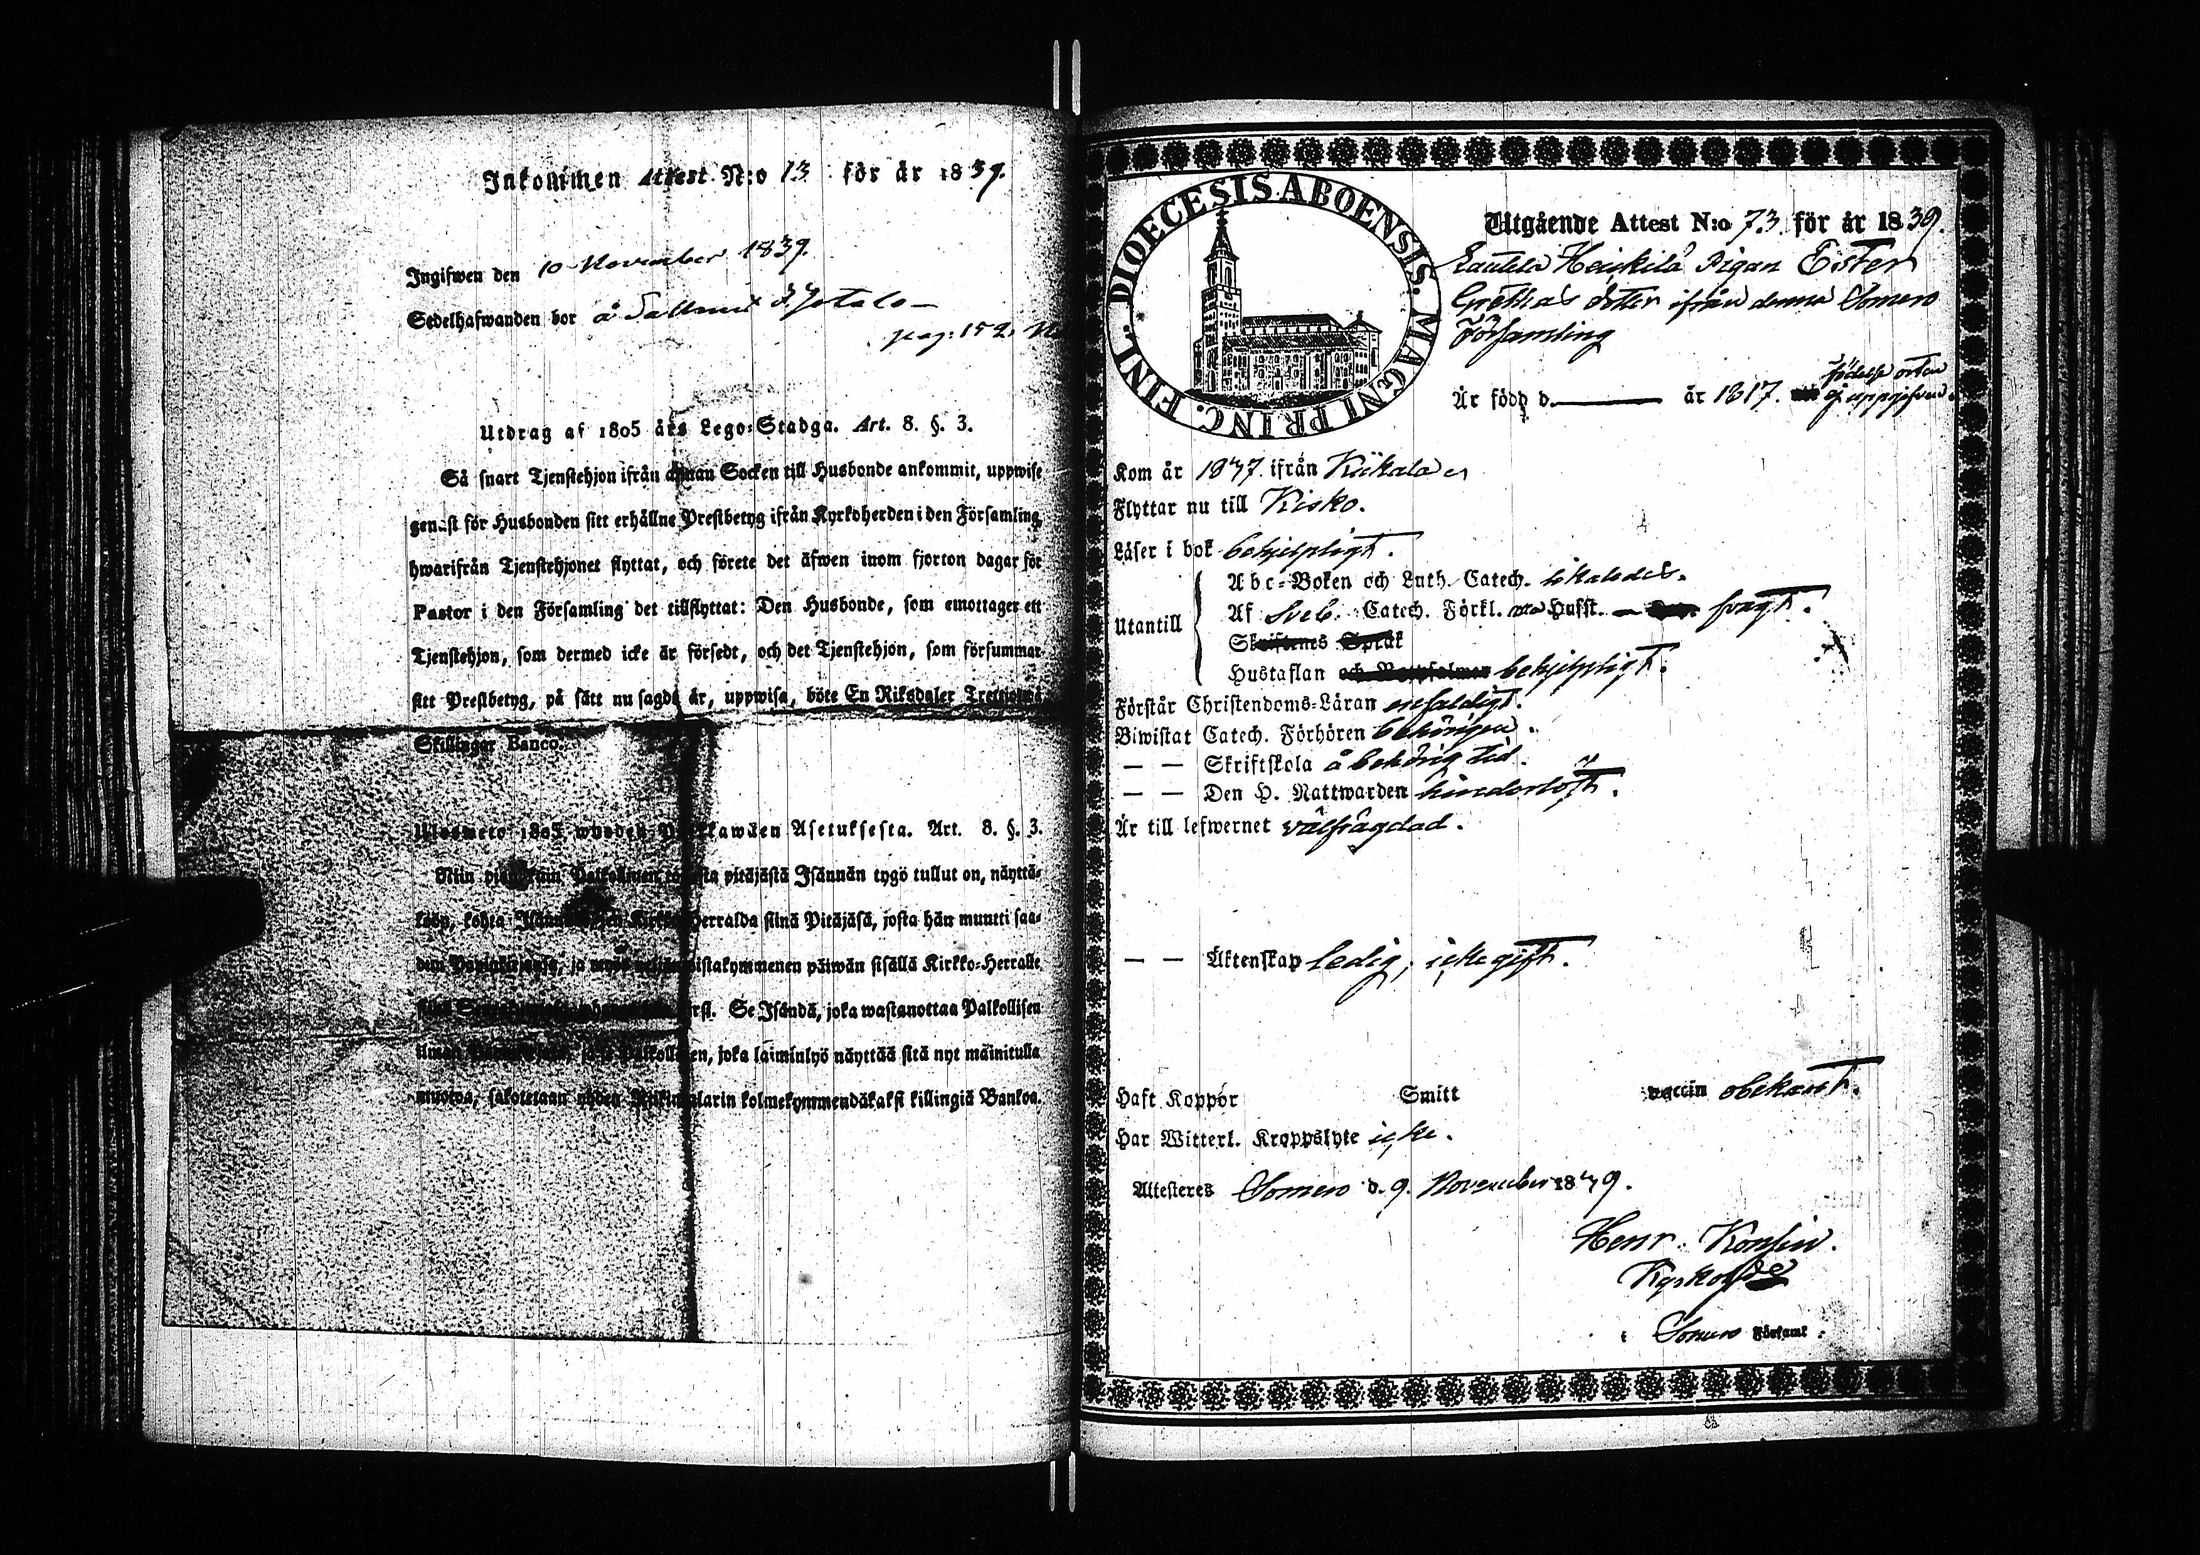 Inkommen Attest N:o 13 för år 1839.
Ingifwen den 10 November 1839.
Sedelhafwanden bor å
pag: 152.
Utdrag af 1805 års Lego-Stadga. Art. 8. §. 3.
Så snart Tjenstehjon ifrån annan Socken till Husbonde ankommit, uppwise
genast för Husbonden sitt erhållne Prestbetyg ifrån Kyrkoherden i den Församling,
hwarifrån Tjenstehjonet flyttat, och förete det äfwen inom fjorton dagar för
Pastor i den Församling det tillflyttat: Den Husbonde, som emottager ett
Tjenstehjon, som dermed icke är försedt, och det Tjenstehjon, som försummar
sitt Prestbetyg, på sätt nu sagdt är, uppwisa, böte En Riksdaler Trettiotwå
Skillingar Banco.
Ulosweto 1805 wuoden Asetuksesta. Art. 8. §. 3.
Niin pitäjästä Isännän tygö tullut on, näyttä-
köön, kohta Herralda siinä Pitäjäsä, josta hän muutti saa-
dun päiwän sisällä Kirkko-Herralle
Se Isändä, joka wastanottaa Palkollisen
ilman joka laiminlyö näyttää sitä nyt mainitulla
muotoa, sakotetaan yhden Riikintalarin kolmekymmendäkaksi killingiä Bankoa.
DIOECESIS ABOENSIS. MAGNI PRINC. FINL.
Utgående Attest N:o 73 för år 1839.
Heickilä Pigan Ester
Grethas dotter ifrån denna Somero
Församling
Är född d. — år 1817. födelse orten
ej uppgifven.
Kom år 1837 ifrån Kiikala
Flyttar nu till Kisko.
Läser i bok behjelpligt.
Utantill
Abc-Boken och Luth. Catech. likaledes.
Af Sveb. Catech. Förkl. Hufst. — svagt.
Skriftenes Språk
Hustaflan och Botpsalmer behjelpligt.
Förstår Christendoms-Läran enfaldigt.
Biwistat Catech. Förhören behörigen.
— — Skriftskola å behörig tid.
— — Den H. Nattwarden
Är till lefwernet välfrägdad.
— — Äktenskap ledig, icke gift.
Haft Koppor Smitt vaccin obekant.
Har Witterl. Kroppslyte icke.
Attesteres Somero d. 9. November 1839.
Henr. Konsin.
Kyrkohde
i Somero Församl.